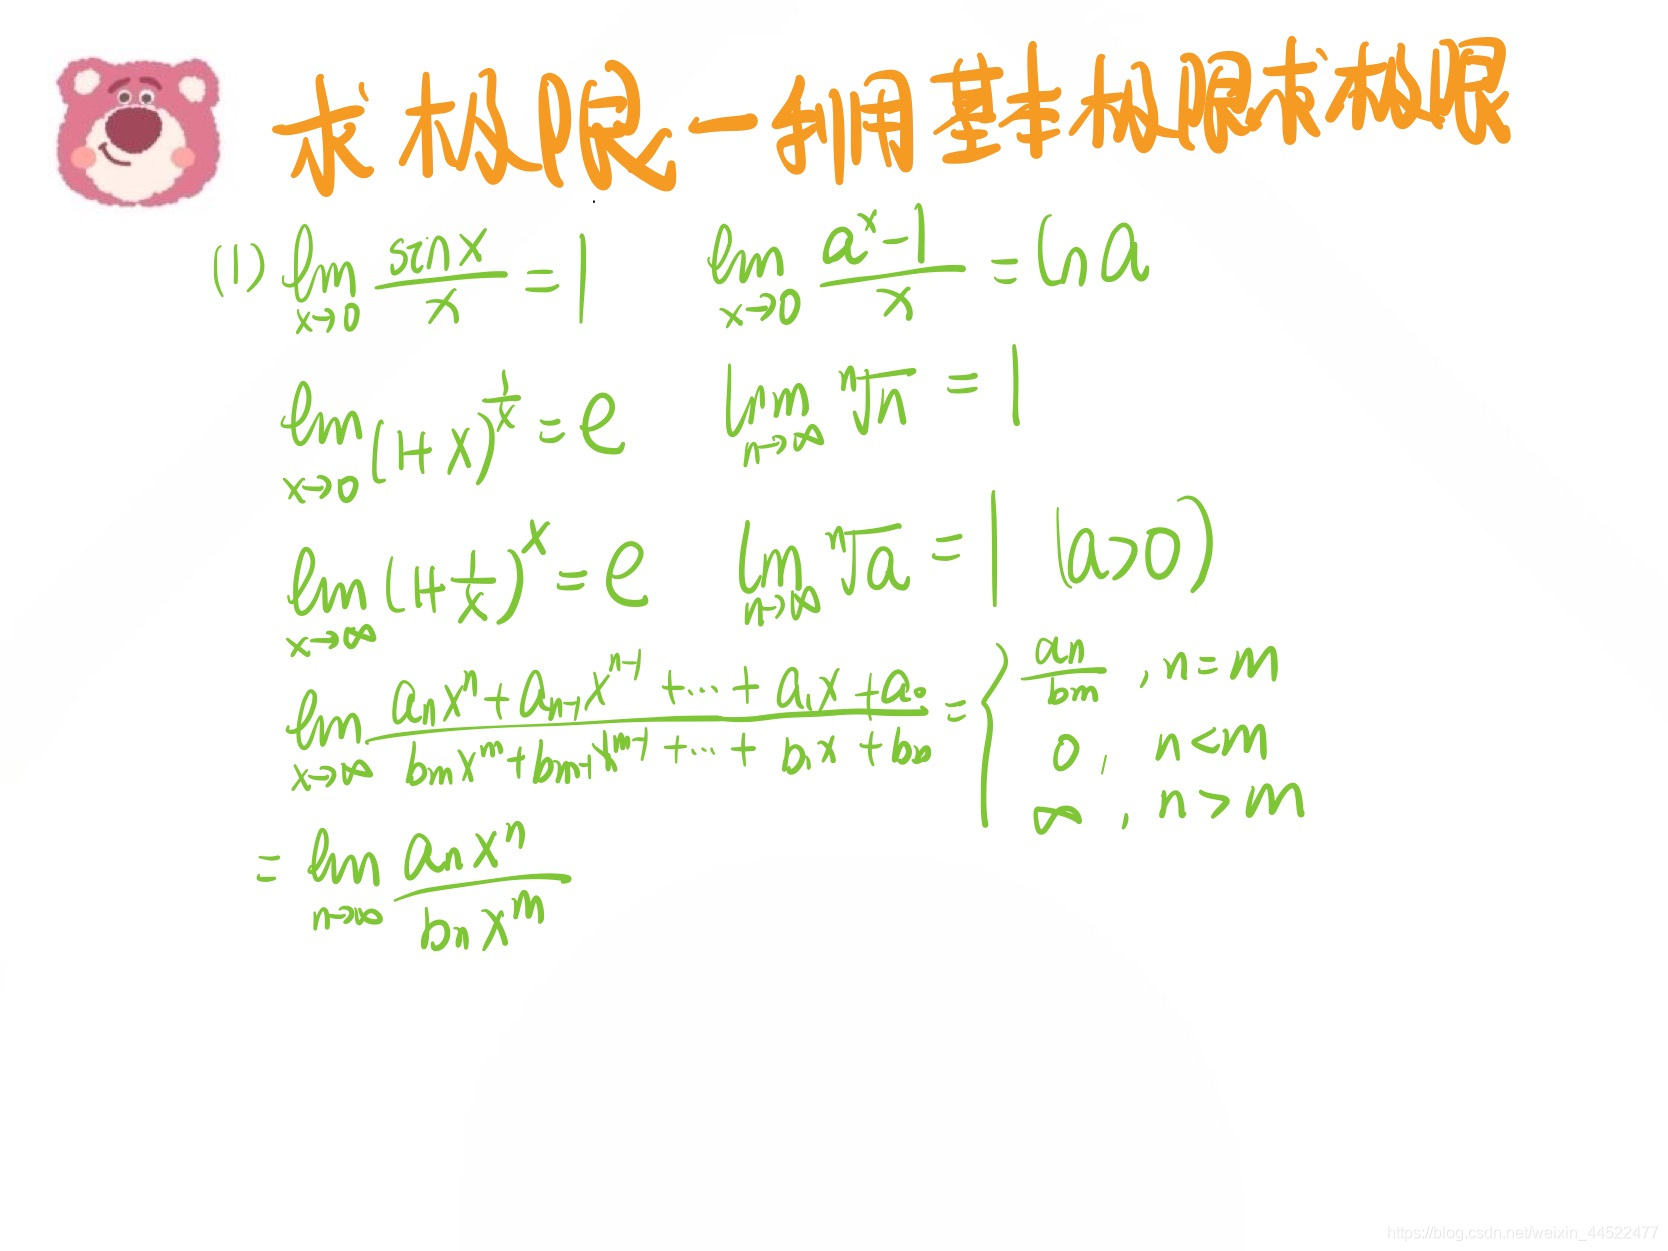 求极限—利用基本极限求极限
(1) lim_{x→0} \frac{sin x}{x} = 1    lim_{x→0} \frac{a^x-1}{x} = ln a
lim_{x→0} (1+x)^{\frac{1}{x}} = e    lim_{n→∞} \sqrt[n]{n} = 1
lim_{x→∞} (1+\frac{1}{x})^x = e    lim_{n→∞} \sqrt[n]{a} = 1 (a>0)
lim_{x→∞} \frac{a_n x^n + a_{n-1} x^{n-1} + ... + a_1 x + a_0}{b_m x^m + b_{m-1} x^{m-1} + ... + b_1 x + b_0} = { \frac{a_n}{b_m}, n=m
0, n<m
∞, n>m
= lim_{n→∞} \frac{a_n x^n}{b_n x^m}
https://blog.csdn.net/weixin_44522477